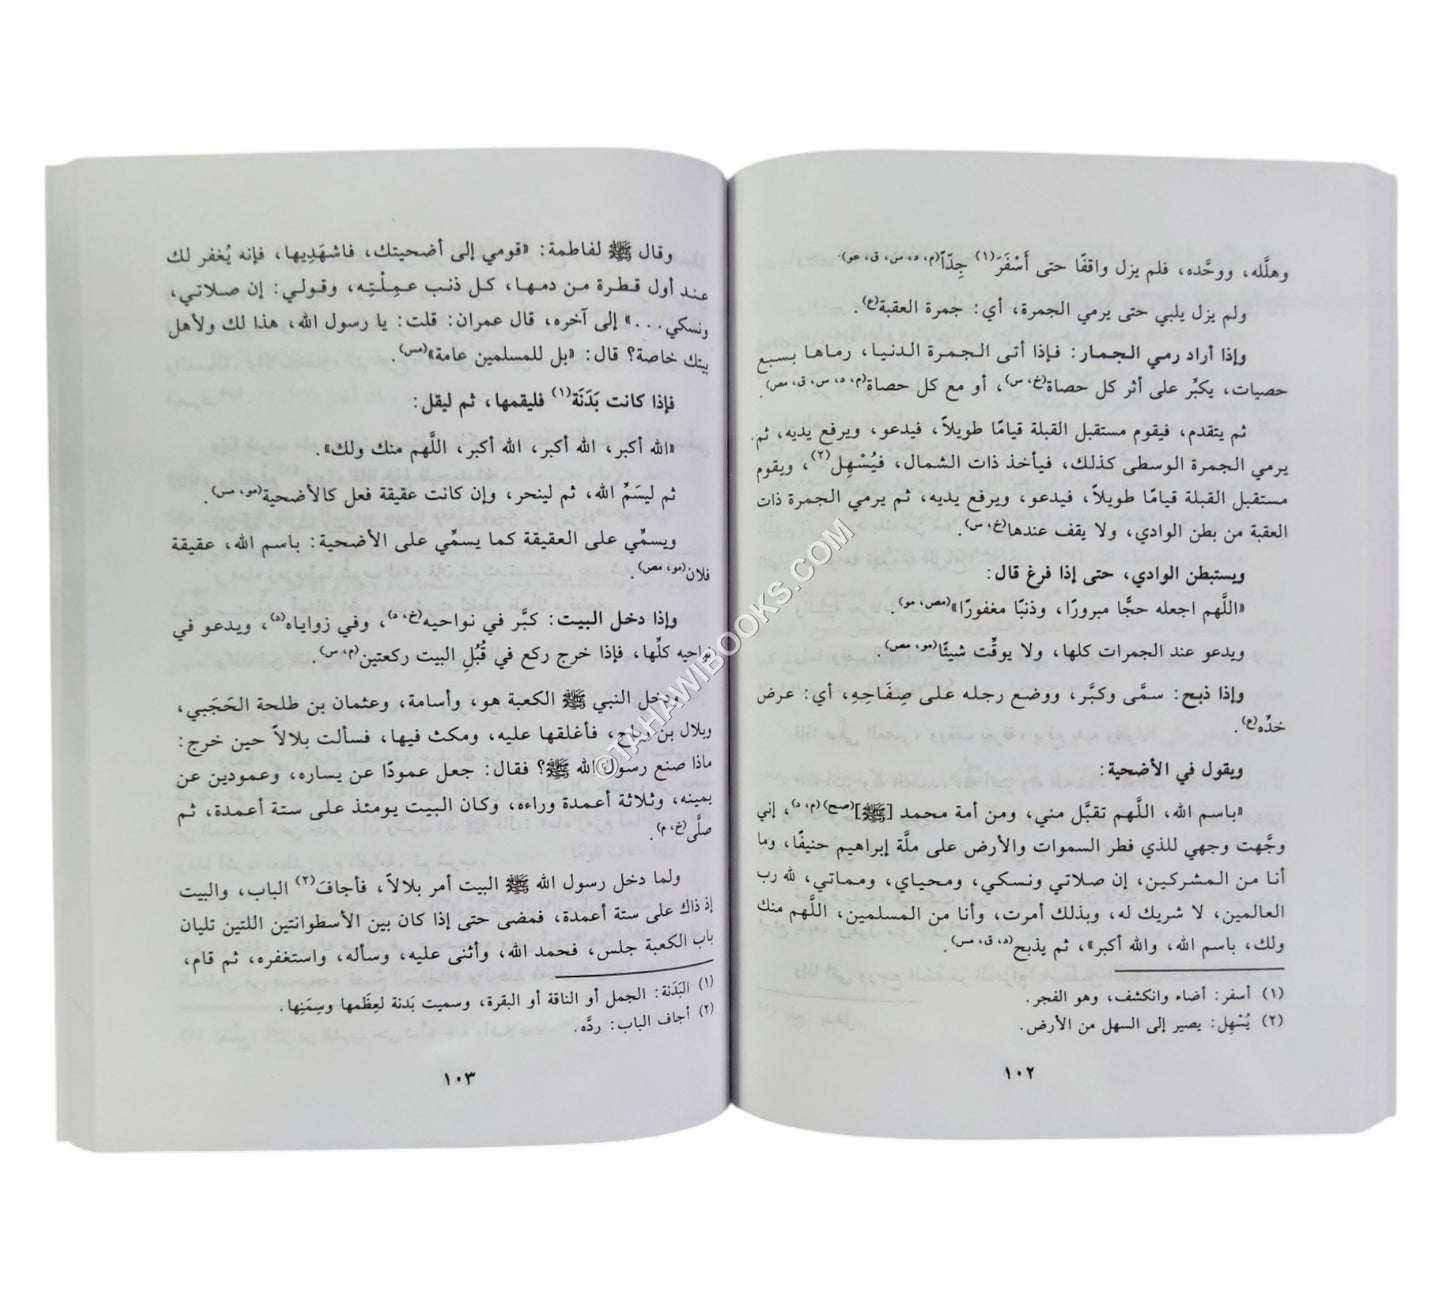 وهلَّله، ووحَّده، فلم يزل واقفًا حتى أَسْفَرَ(١) جِدًّا(م، د، س، ق، عو).
ولم يزل يلبي حتى يرمي الجمرة، أي: جمرة العقبة(ع).
وإذا أراد رمي الجمار: فإذا أتى الجمرة الدنيا، رماها بسبع
حصيات، يكبِّر على أثر كل حصاة(خ، س)، أو مع كل حصاة(م، د، س، ق، مص).
ثم يتقدم، فيقوم مستقبل القبلة قيامًا طويلاً، فيدعو، ويرفع يديه، ثم
يرمي الجمرة الوسطى كذلك، فيأخذ ذات الشمال، فيُسْهِل(٢)، ويقوم
مستقبل القبلة قيامًا طويلاً، فيدعو، ويرفع يديه، ثم يرمي الجمرة ذات
العقبة من بطن الوادي، ولا يقف عندها(خ، س).
ويستبطن الوادي، حتى إذا فرغ قال:
«اللَّهم اجعله حجًّا مبرورًا، وذنبًا مغفورًا»(مص، مو).
ويدعو عند الجمرات كلها، ولا يوقِّت شيئًا(مو، مص).
وإذا ذبح: سمَّى وكبَّر، ووضع رجله على صِفَاحِهِ، أي: عرض
خدِّه(ع).
ويقول في الأضحية:
«باسم الله، اللَّهم تقبَّل مني، ومن أمة محمد [ﷺ](صح)(م، د)، إني
وجَّهت وجهي للذي فطر السموات والأرض على ملَّة إبراهيم حنيفًا، وما
أنا من المشركين، إن صلاتي ونسكي، ومحياي، ومماتي، لله رب
العالمين، لا شريك له، وبذلك أمرت، وأنا من المسلمين، اللَّهم منك
ولك، باسم الله، والله أكبر»، ثم يذبح(د، ق، مس).
(١) أسفر: أضاء وانكشف، وهو الفجر.
(٢) يُسْهِل: يصير إلى السهل من الأرض.
١٠٢
وقال ﷺ لفاطمة: «قومي إلى أضحيتك، فاشهَدِيها، فإنه يُغفر لك
عند أول قطرة من دمها، كل ذنب عمِلْتِه، وقولي: إن صلاتي،
ونسكي...» إلى آخره، قال عمران: قلت: يا رسول الله، هذا لك ولأهل
بيتك خاصة؟ قال: «بل للمسلمين عامة»(مس).
فإذا كانت بَدَنَة(١) فليقمها، ثم ليقل:
«الله أكبر، الله أكبر، الله أكبر، اللَّهم منك ولك».
ثم ليسَمِّ الله، ثم لينحر، وإن كانت عقيقة فعل كالأضحية(مو، مس).
ويسمِّي على العقيقة كما يسمِّي على الأضحية: باسم الله، عقيقة
فلان(مو، مص).
وإذا دخل البيت: كبَّر في نواحيه(خ، د)، وفي زواياه(د)، ويدعو في
نواحيه كلِّها، فإذا خرج ركع في قُبُلِ البيت ركعتين(م، س).
ودخل النبي ﷺ الكعبة هو، وأسامة، وعثمان بن طلحة الحَجَبي،
وبلال بن رباح، فأغلقها عليه، ومكث فيها، فسألت بلالاً حين خرج:
ماذا صنع رسول الله ﷺ؟ فقال: جعل عمودًا عن يساره، وعمودين عن
يمينه، وثلاثة أعمدة وراءه، وكان البيت يومئذ على ستة أعمدة، ثم
صلَّى(خ، م).
ولما دخل رسول الله ﷺ البيت أمر بلالاً، فأجافَ(٢) الباب، والبيت
إذ ذاك على ستة أعمدة، فمضى حتى إذا كان بين الأسطوانتين اللتين تليان
باب الكعبة جلس، فحمد الله، وأثنى عليه، وسأله، واستغفره، ثم قام،
(١) البَدَنة: الجمل أو الناقة أو البقرة، وسميت بَدنة لعِظَمها وسِمَنِها.
(٢) أجاف الباب: ردَّه.
١٠٣
©TAHAWIBOOKS.COM